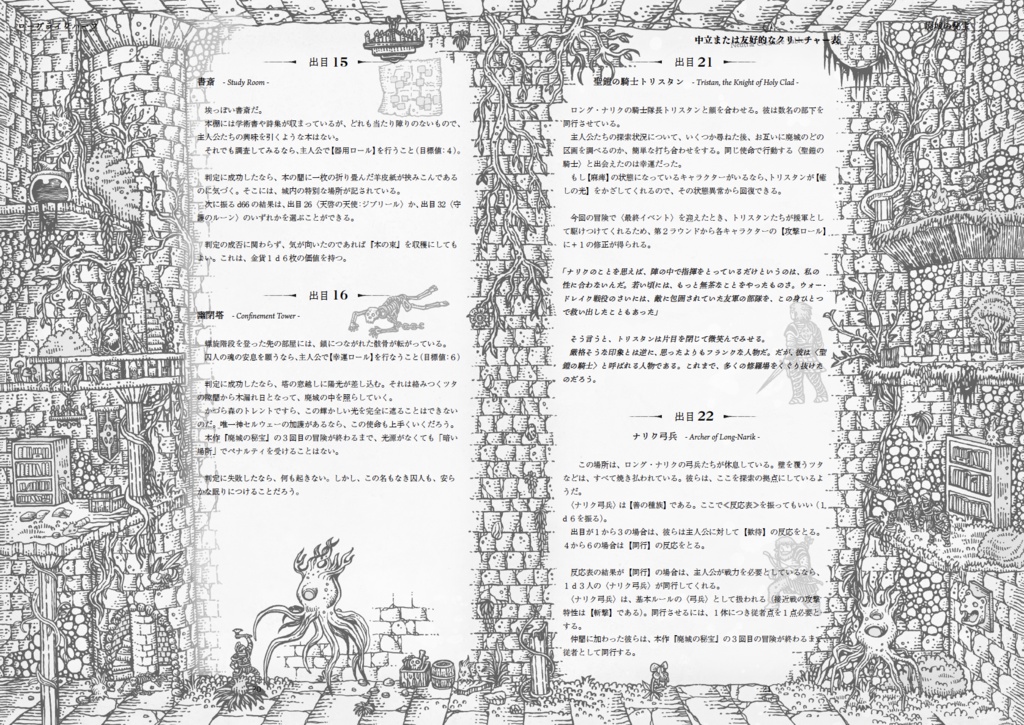 出目 15
書斎 - Study Room -
埃っぽい書斎だ。
本棚には学術書や詩集が収まっているが、どれも当たり障りのないもので、
主人公たちの興味を引くような本はない。
それでも調査してみるなら、主人公で【器用ロール】を行うこと(目標値：4)。
判定に成功したなら、本の間に一枚の折り畳んだ羊皮紙が挟みこんである
のに気づく。そこには、城内の特別な場所が記されている。
次に振る d66 の結果は、出目 26〈天啓の天使：ジブリール〉か、出目 32〈守
護のルーン〉のいずれかを選ぶことができる。
判定の成否に関わらず、気が向いたのであれば『本の束』を収穫にしても
よい。これは、金貨1d6枚の価値を持つ。
出目 16
幽閉塔 - Confinement Tower -
螺旋階段を登った先の部屋には、鎖につながれた骸骨が転がっている。
囚人の魂の安息を願うなら、主人公で【幸運ロール】を行なうこと(目標値：6)
判定に成功したなら、塔の窓越しに陽光が差し込む。それは絡みつくツタ
の隙間から木漏れ日となって、廃城の中を照らしていく。
かづら森のトレントですら、この輝かしい光を完全に遮ることはできない
のだ。唯一神セルウェーの加護があるなら、この使命も上手くいくだろう。
本作『廃城の秘宝』の3回目の冒険が終わるまで、光源がなくても「暗い
場所」でペナルティを受けることはない。
判定に失敗したなら、何も起きない。しかし、この名もなき囚人も、安ら
かな眠りにつけることだろう。
中立または友好的なクリーチャー表
出目 21
聖鎧の騎士トリスタン - Tristan, the Knight of Holy Clad -
ロング・ナリクの騎士隊長トリスタンと顔を合わせる。彼は数名の部下を
同行させている。
主人公たちの探索状況について、いくつか尋ねた後、お互いに廃城のどの
区画を調べるのか、簡単な打ち合わせをする。同じ使命で行動する〈聖鎧の
騎士〉と出会えたのは幸運だった。
もし【麻痺】の状態になっているキャラクターがいるなら、トリスタンが【癒
しの光】をかざしてくれるので、その状態異常から回復できる。
今回の冒険で〈最終イベント〉を迎えたとき、トリスタンたちが援軍とし
て駆けつけてくれるため、第2ラウンドから各キャラクターの【攻撃ロール】
に+1の修正が得られる。
「ナリクのことを思えば、陣の中で指揮をとっているだけというのは、私の
性に合わないんだ。若い頃には、もっと無茶なことをやったものさ。ウォー・
ドレイク戦役のさいには、敵に包囲されていた友軍の部隊を、この身ひとつ
で救い出したこともあった」
そう言うと、トリスタンは片目を閉じて微笑んでみせる。
厳格そうな印象とは逆に、思ったよりもフランクな人物だ。だが、彼は〈聖
鎧の騎士〉と呼ばれる人物である。これまで、多くの修羅場をくぐり抜けた
のだろう。
出目 22
ナリク弓兵 - Archer of Long-Narik -
この場所は、ロング・ナリクの弓兵たちが休息している。壁を覆うツタ
などは、すべて焼き払われている。彼らは、ここを探索の拠点にしているよ
うだ。
〈ナリク弓兵〉は【善の種族】である。ここで＜反応表＞を振ってもいい(1
d6を振る)。
出目が1から3の場合は、彼らは主人公に対して【歓待】の反応をとる。
4から6の場合は【同行】の反応をとる。
反応表の結果が【同行】の場合は、主人公が戦力を必要としているなら、
1d3人の〈ナリク弓兵〉が同行してくれる。
〈ナリク弓兵〉は、基本ルールの〈弓兵〉として扱われる(接近戦の攻撃
特性は【斬撃】である)。同行させるには、1体につき従者点を1点必要と
する。
仲間に加わった彼らは、本作『廃城の秘宝』の3回目の冒険が終わるまで
従者として同行する。